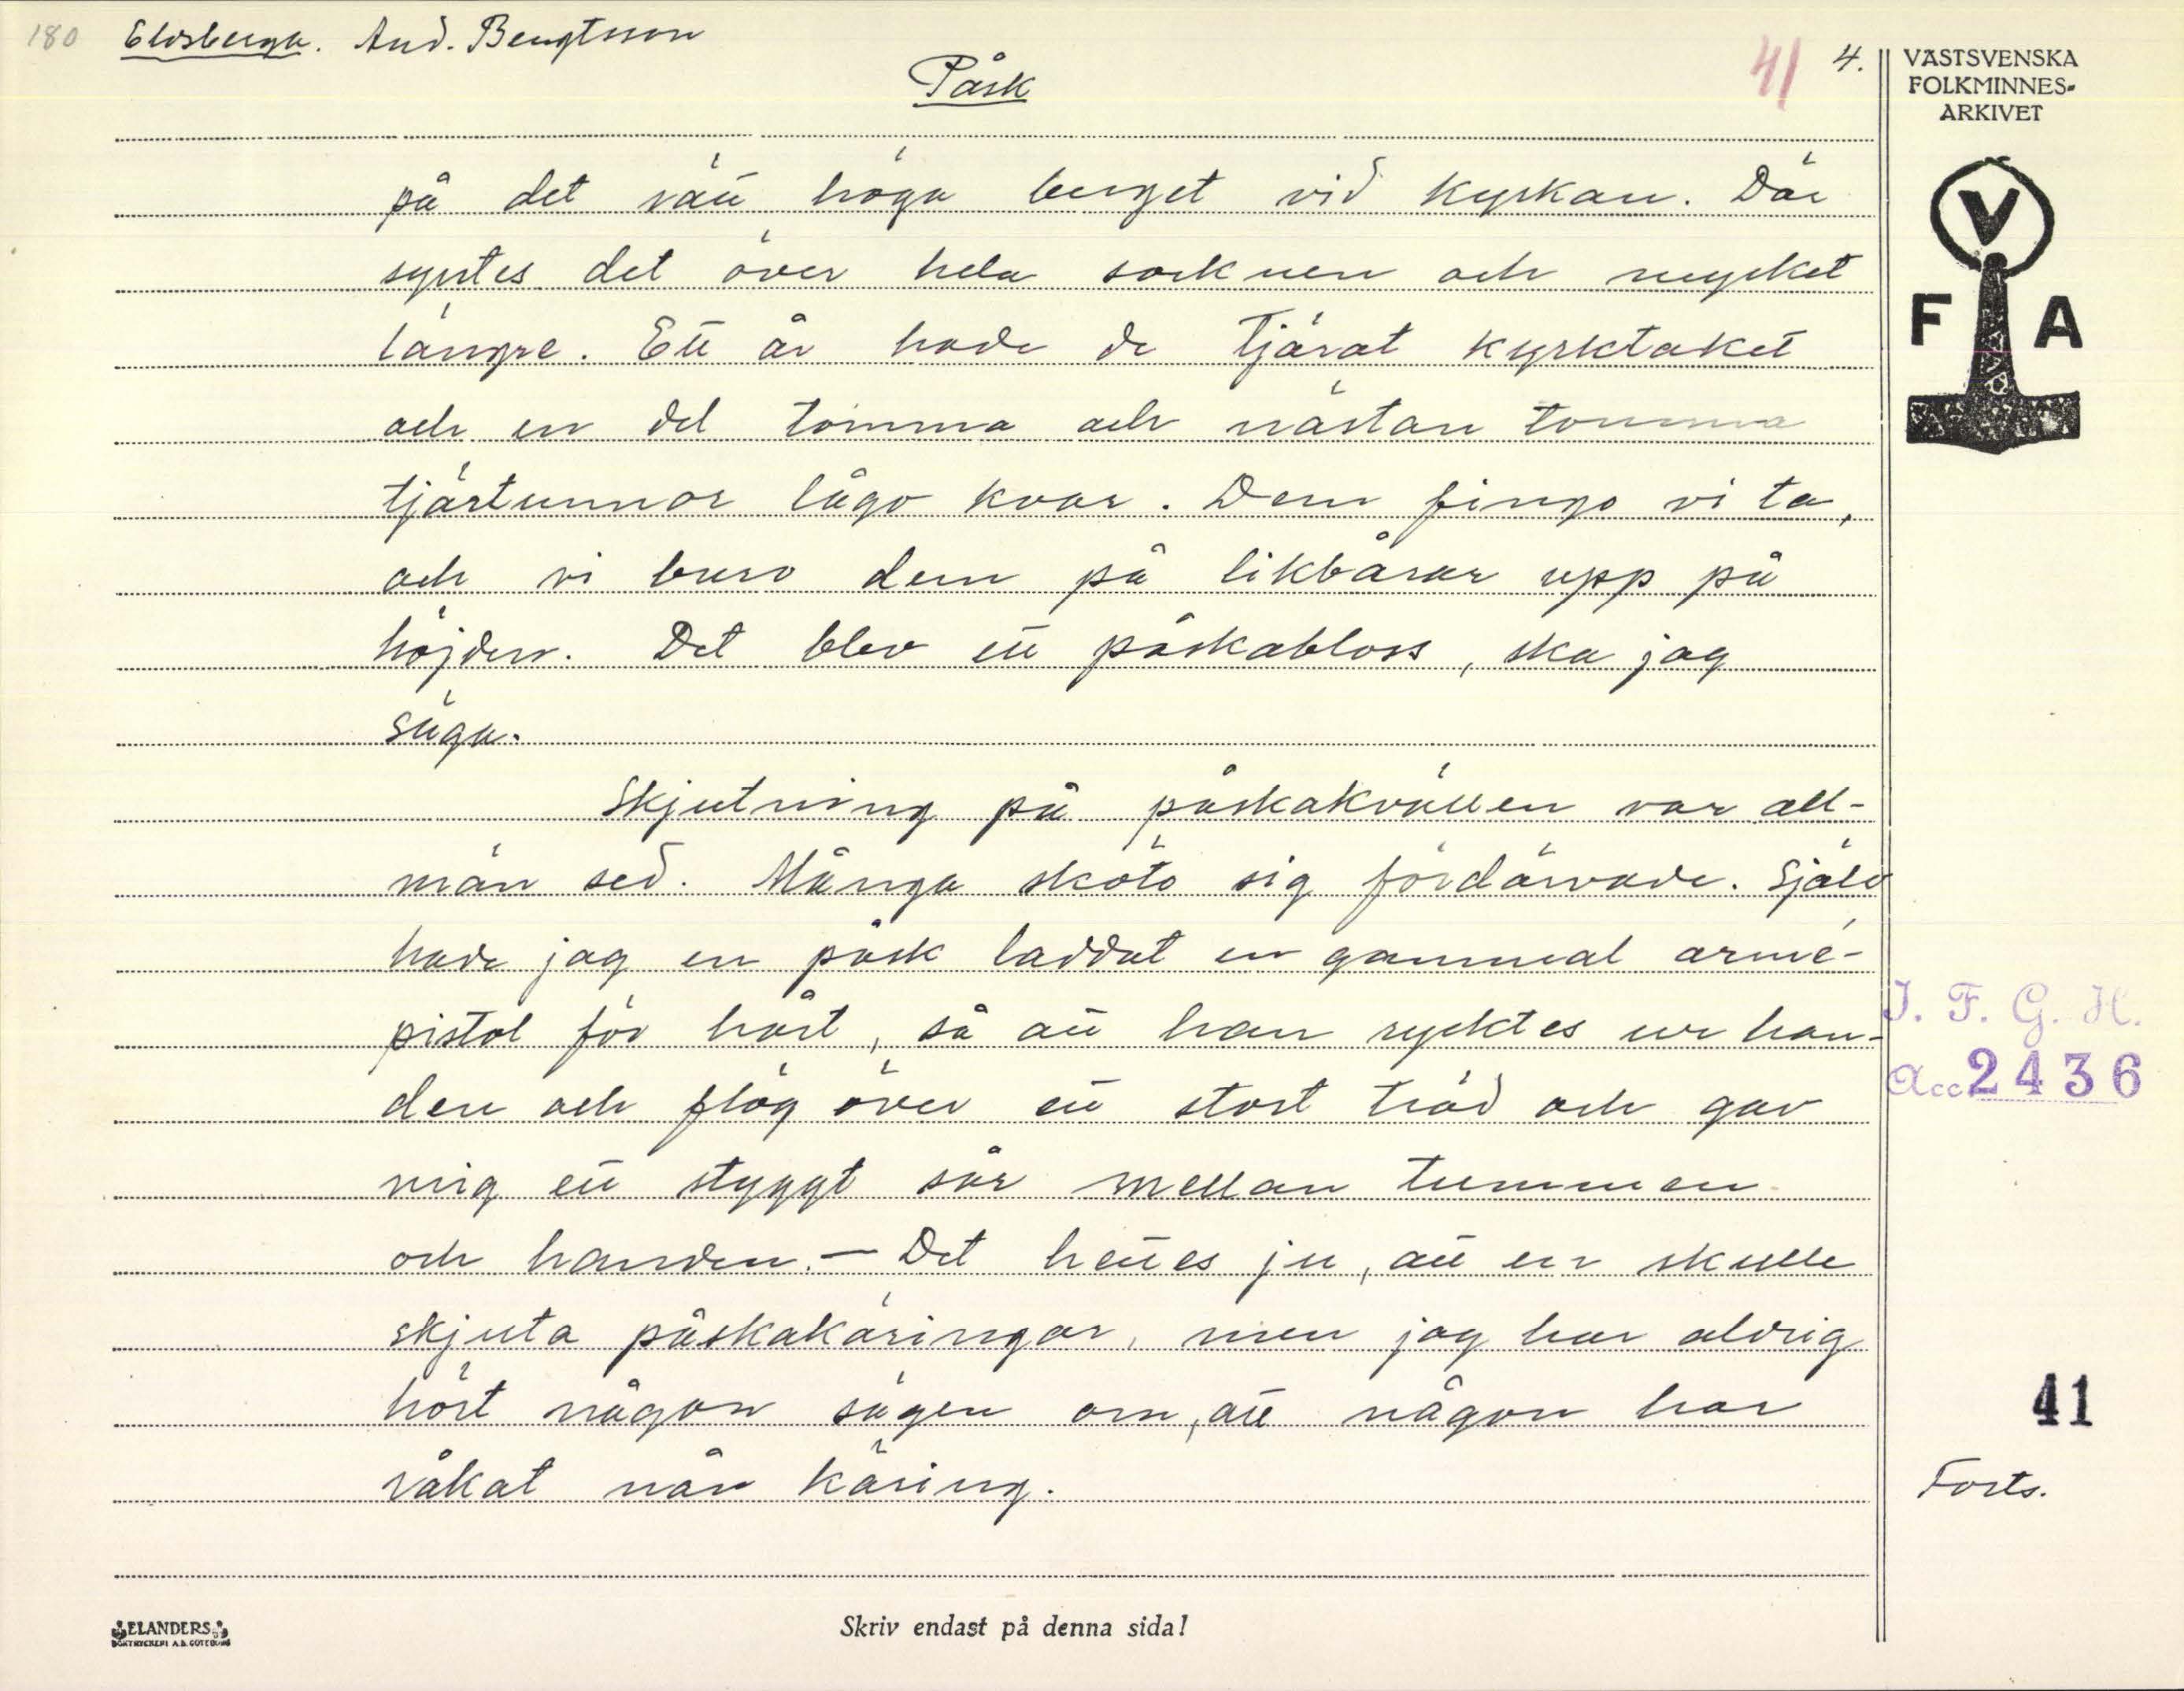 180 Eldsberga. And. Bengtsson
Påsk
41 4.
VÄSTSVENSKA
FOLKMINNES-
ARKIVET
V
F A
på det rätt höga berget vid kyrkan. Där
syntes det över hela socknen och mycket
längre. Ett år hade de tjärat kyrktaket
och en del tomma och nästan tomma
tjärtunnor lågo kvar. Dem fingo vi ta,
och vi buro dem på likbårar upp på
höjden. Det blev ett påskabloss, ska jag
säga.
Skjutning på påskakvällen var all-
män sed. Många sköto sig fördärvade. Själv
hade jag en påsk laddat en gammal armé-
pistol för hårt, så att han rycktes ur han-
den och flög över ett stort träd och gav
mig ett styggt sår mellan tummen
och handen. — Det hettes ju, att en skulle
skjuta påskakäringar, men jag har aldrig
hört någon sägen om, att någon har
råkat nån käring.
I. F. G. H.
Acc 2436
41
Forts.
ELANDERS
BOKTRYCKERI A.B. GÖTEBORG
Skriv endast på denna sida!